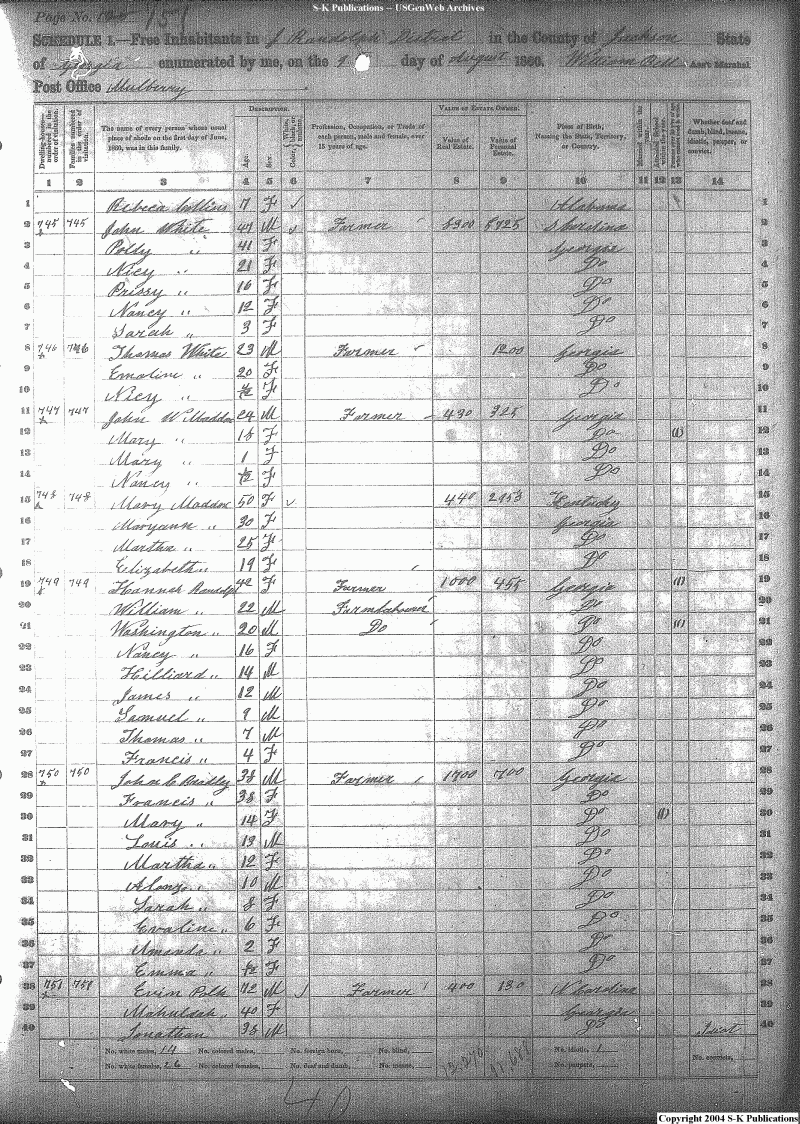 S-K Publications -- USGenWeb Archives
Page No. 151
SCHEDULE 1.—Free Inhabitants in J Randolph District in the County of Jackson State
of Georgia enumerated by me, on the 9 day of August 1860. William Bell Ass't Marshal
Post Office Mulberry
DESCRIPTION. VALUE OF ESTATE OWNED.
Dwelling-houses—numbered in the order of visitation. Families numbered in the order of visitation. The name of every person whose usual place of abode on the first day of June, 1860, was in this family. Age. Sex. Color, White, black, or mulatto. Profession, Occupation, or Trade of each person, male and female, over 15 years of age. Value of Real Estate. Value of Personal Estate. Place of Birth, Naming the State, Territory, or Country. Married within the year. Attended School within the year. Whether deaf and dumb, blind, insane, idiotic, pauper, or convict.
1 2 3 4 5 6 7 8 9 10 11 12 13 14
1 Rebeca Collins 7 F Alabama 1
2 745 745 John White 47 M Farmer S Carolina 2
3 Polly " 41 F Georgia 3
4 Nicy " 21 F Do 4
5 Prissy " 16 F Do 5
6 Nancy " 12 F Do 6
7 Sarah " 3 F Do 7
8 746 746 Thomas White 23 M Farmer 1200 Georgia 8
9 Emaline " 20 F Do 9
10 Nicy " F Do 10
11 747 747 John W Maddox 24 M Farmer 430 325 Georgia 11
12 Mary " 18 F Do (1) 12
13 Mary " 1 F Do 13
14 Nancy " F Do 14
15 748 748 Mary Maddox 50 F 440 2953 Kentucky 15
16 Maryann " 30 F Georgia 16
17 Martha " 25 F Do 17
18 Elizabeth " 19 F Do 18
19 749 749 Hannah Randolph 42 F Farmer 1000 455 Georgia (1) 19
20 William " 22 M Farmlabourer Do 20
21 Washington " 20 M Do Do (1) 21
22 Nancy " 16 F Do 22
23 Hilliard " 14 M Do 23
24 James " 12 M Do 24
25 Samuel " 9 M Do 25
26 Thomas " 7 M Do 26
27 Francis " 4 F Do 27
28 750 750 John C Bradly 38 M Farmer 1700 700 Georgia 28
29 Francis " 38 F Do 29
30 Mary " 14 F Do (1) 30
31 Louis " 13 M Do 31
32 Martha " 12 F Do 32
33 Alonzo " 10 M Do 33
34 Sarah " 8 F Do 34
35 Evaline " 6 F Do 35
36 Amanda " 2 F Do 36
37 Emma " F Do 37
38 751 751 Evin Polk 72 M Farmer 400 130 N Carolina 38
39 Mahuldah " 40 F Georgia 39
40 Jonathan 38 M Do Idiot 40
No. white males, 14 No. colored males, No. foreign born, No. blind, No. idiotic, 1 No. convicts,
No. white females, 26 No. colored females, No. deaf and dumb, No. insane, No. paupers,
40
Copyright 2004 S-K Publications